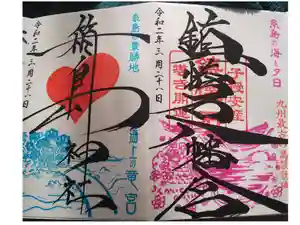 糸島の海と夕日
九州最古
子授安産
鎮懐石八幡宮
令和二年三月二十八日
糸島の景勝地
海上の竜宮
箱島神社
令和二年三月二十八日